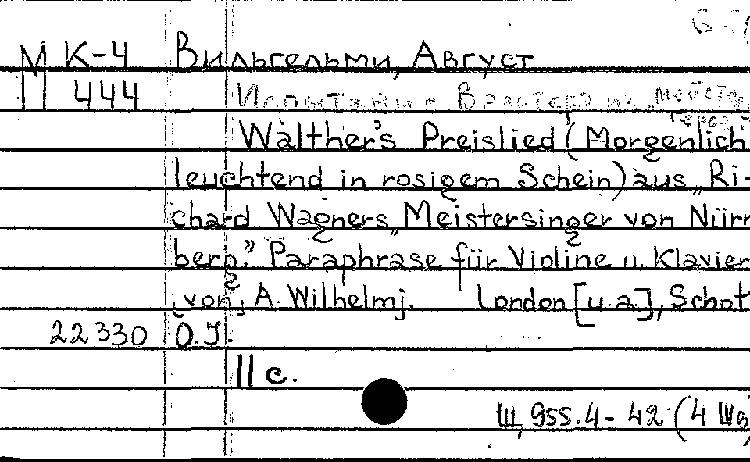 М К-4 Вильгельми, Август
444 Испытание Вальтера
Walther's Preislied (Morgenlich
leuchtend in rosigem Schein) aus „Ri-
chard Wagners „Meistersinger von Nürn
berg." Paraphrase für Violine u. Klavier
[von] A. Wilhelmj. London [u.a.], Schot
22330 O.J.
11 с.
Ш, 955.4-42 (4 Wg